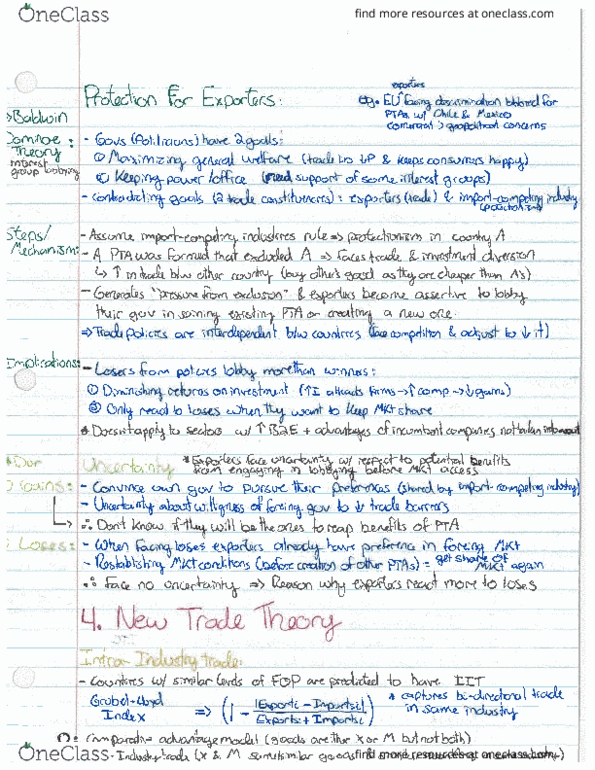 OneClass
find more resources at oneclass.com
Protection For Exporters:
exporters
eg. EU facing discrimination
PTAs w/ Chile & Mexico
commercial > geopolitical concerns
→Baldwin
Domino
Theory
interest
group lobbying
- Govs (Politicians) have 2 goals:
① Maximizing general welfare (trade libs ↓P & keeps consumers happy)
② Keeping power/office (need support of some interest groups)
- Contradicting goals (2 trade constituencies): exporters (trade) & import-competing industry
(protectionist)
Steps/
Mechanism:
- Assume import-competing industries rule ⇒ protectionism in country A
- A PTA was formed that excluded A ⇒ faces trade & investment diversion
↳ ↑ in trade b/w other country (buy other's good as they are cheaper than A's)
- Generates "pressure from exclusion" & exporters become assertive to lobby
their gov in joining existing PTA or creating a new one.
⇒ Trade policies are interdependent b/w countries (face competition & adjust to ↓ it)
Implications:
- Losers from policies lobby more than winners:
① Diminishing returns on investment (↑I attracts firms → ↑comp → ↓gains)
② Only react to loses when they want to keep MKT share
* Doesn't apply to sectors w/ ↑B2E + advantages of incumbent companies not taken into account
Uncertainty
* Exporters face uncertainty w/ respect to potential benefits
from engaging in lobbying before MKT access
Gains:
- Convince own gov to pursue their preferences (shared by import-competing industry)
- Uncertainty about willigness of foreing gov to ↓ trade barriers
↳ ∴ Don't know if they will be the ones to reap benefits of PTA
Loses:
- When facing loses exporters already have preference in foreing MKT
- Restablishing MKT conditions (before creation of other PTAs) = get share of
MKT again
∴ Face no uncertainty ⇒ Reason why exporters react more to loses
4. New Trade Theory
Intra-Industry trade:
- Countries w/ similar levels of FOP are predicted to have IIT
Grubel-Lloyd
Index
⇒ (1 - |Exports i - Imports i| / Exports i + Imports i)
* captures bi-directional trade
in same industry
0 = Comparative advantage model (goods are ther X or M but not both)
OneClass
Industry trade (X & M some similar goods
find more resources at oneclass.com